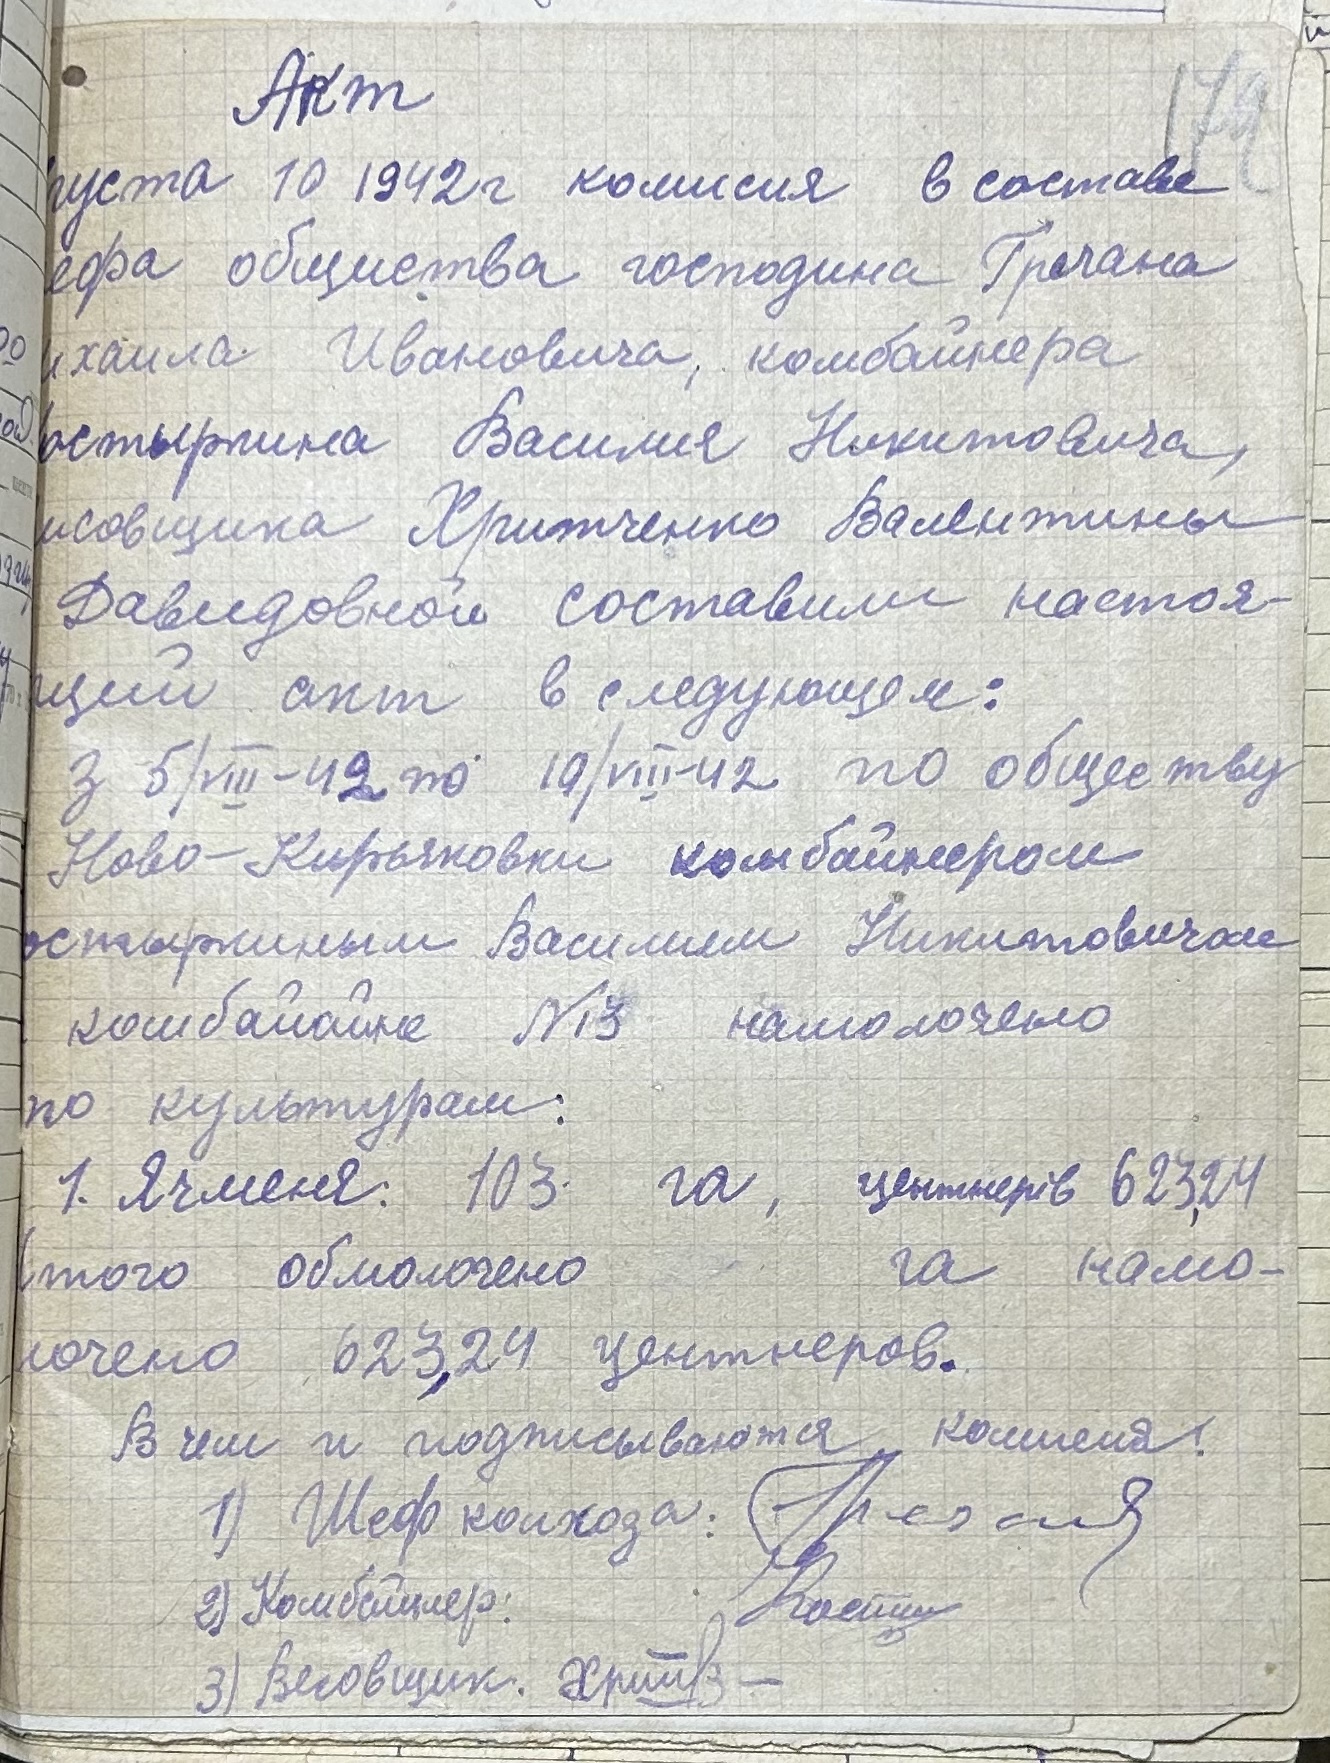 Акт
179
густа 10 1942 г комисия в составе
ефа общиства господина Гречана
ихаила Ивановича, комбайнера
остыркина Василия Никитовича,
исовщика Хритченко Валентины
Давидовной составили настоя-
щий акт в следующем:
З 5/VIII-42 по 10/VIII-42 по обществу
Ново-Кирьяковки комбайнером
остыркиным Василием Никитовичом
комбайайне №3 намолочено
по культурам:
1. Ячменя: 103 га, центнерів 623,24
Итого обмолочено га намо-
лочено 623,24 центнеров.
В чем и подписываются комисия:
1) Шеф колхоза:
2) Комбайнер:
3) Весовщик.